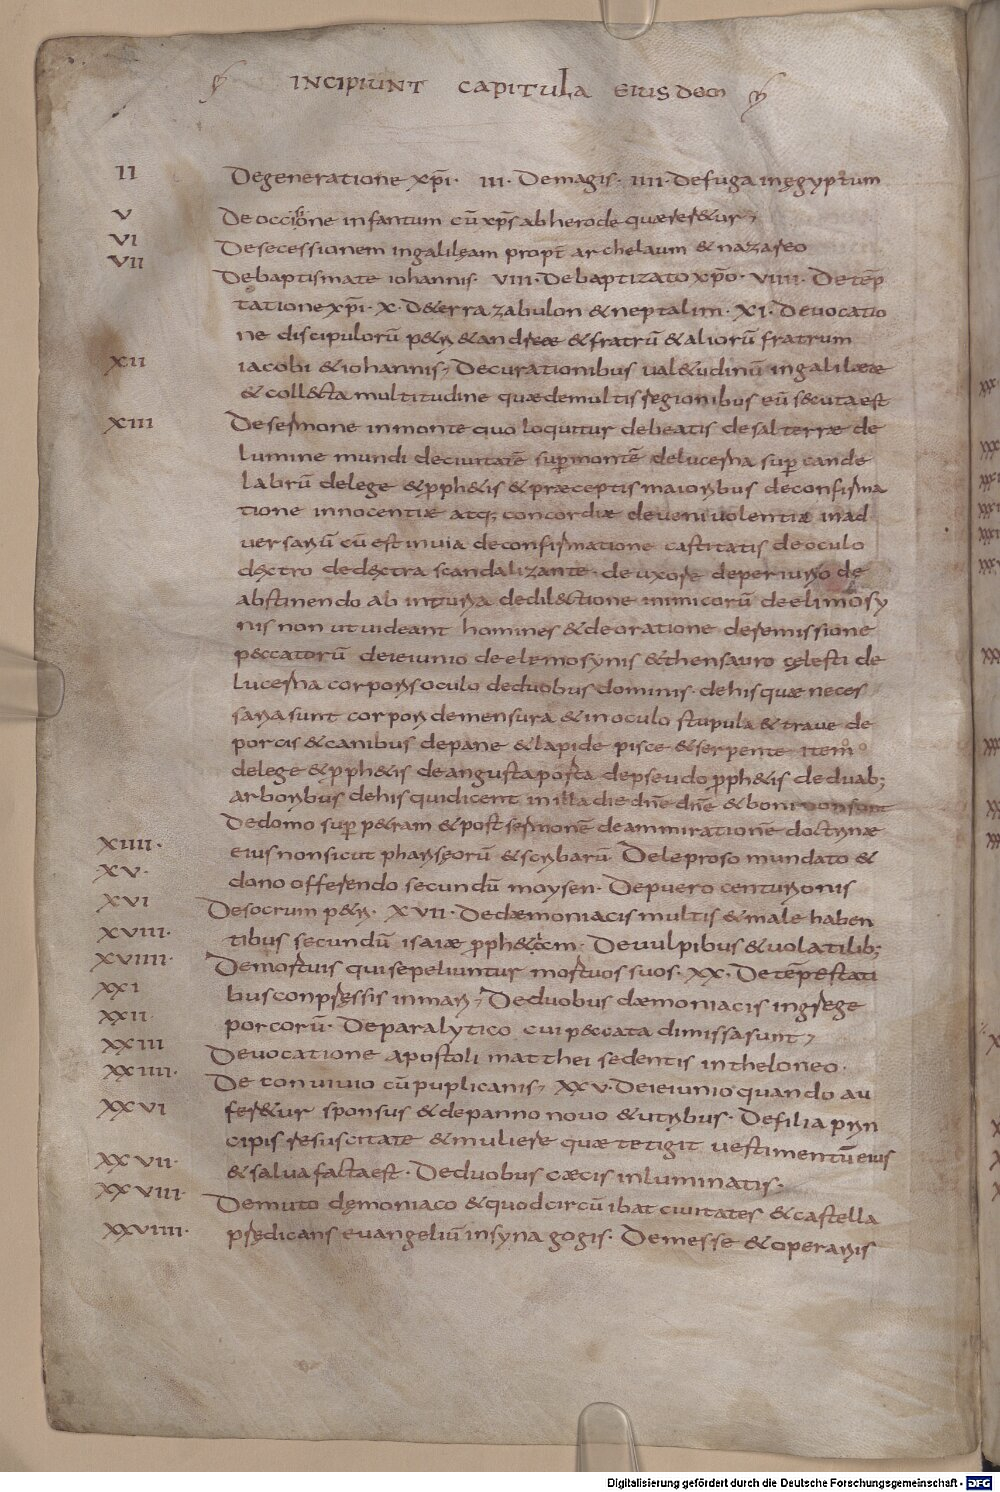 INCIPIUNT CAPITULA EIUSDEM
II Degeneratione xp̄i· III· Demagis· IIII· Defuga inęgyptum
V De occisione infantum cū xp̄s abherode quæreret&ur
VI Desecessionem ingalilęam propt̄ archelaum & nazareo
VII Debaptismate iohannis· VIII· Debaptizato xp̄o· VIIII· De tēp
tatione xp̄i· X· D&erra zabulon & neptalim· XI· Deuocatio
ne discipulorū p&ri & andreæ & fratrū & aliorū fratrum
XII iacobi & iohannis, Decurationibus ual&udinū ingalilææ
& coll&cta multitudine quæ demultis regionibus eū secuta est
XIII Desermone inmonte quo loquitur debeatis desal terræ de
lumine mundi deciuitatē sup montē delucerna sup cande
labrū delege & pph&is & præceptis maioribus deconfirma
tione innocentiæ atq; concordiæ deueniuolentiæ inad
uersariū cū est inuia deconfirmatione castitatis deoculo
dextro dedextra scandalizante· deuxore deperiurio de
abstinendo ab iniuria dedil&ctione inimicorū deelimosy
nis non ut uideant homines & deoratione deremissione
peccatorū deieiunio deelemosynis & thensauro cęlesti de
lucerna corporis oculo deduobus dominis· dehis quæ neces
saria sunt corpori demensura & inoculo stupula & traue de
porcis & canibus depane & lapide pisce & serpente item
delege & pph&is deangusta porta depseudo pph&is deduab;
arboribus dehis qui dicent inilla die dn̄e dn̄e & boni non sunt
Dedomo sup p&ram & post sermonē deammirationē doctrinæ
XIIII· eius non sicut phariseorū & scribarū· Deleproso mundato &
XV· dono offerendo secundū moysen· Depuero centurionis
XVI Desocrum p&ri· XVII· Dedæmoniacis multis & male haben
XVIII· tibus secundū isaiæ pph&iam· Deuulpibus & uolatilib;
XVIIII· Demortuis qui sepeliuntur mortuos suos· XX· Detēpestati
XXI bus conpressis inmari, Deduobus dæmoniacis ingrege
XXII porcorū· Deparalytico cui peccata dimissa sunt,
XXIII Deuocatione apostoli matthei sedentis intheloneo·
XXIIII· De conuiuio cū puplicanis, XXV· Deieiunio quando au
XXVI fer&ur sponsus & depanno nouo & utribus· Defilia prin
cipis resuscitate & muliere quæ tetigit uestimentū eius
XXVII· & salua facta est· Deduobus cæcis inluminatis·
XXVIII· Demuto dęmoniaco & quod circū ibat ciuitates & castella
XXVIIII· prędicans euangeliū insynagogis· Demesse & operariis
Digitalisierung gefördert durch die Deutsche Forschungsgemeinschaft - DFG